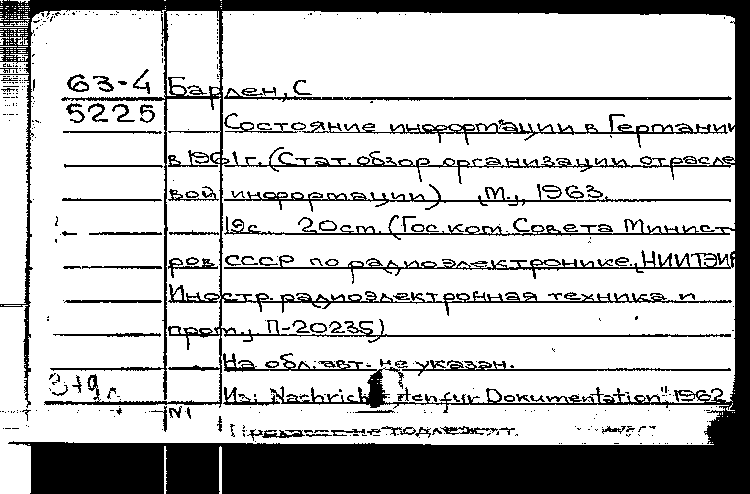 63-4 Барлен, С
5225
Состояние информации в Германии
в 1961г. (Стат. обзор организации отрасле
вой информации) М., 1963.
19с 20см. (Гос. ком. Совета Минист-
ров СССР по радиоэлектронике, НИИТЭИР
Иностр. радиоэлектронная техника и
пром, П-20235)
На обл. авт. не указан.
Из: Nachrichtenfur Dokumentation", 1962
N1
не подлежит.